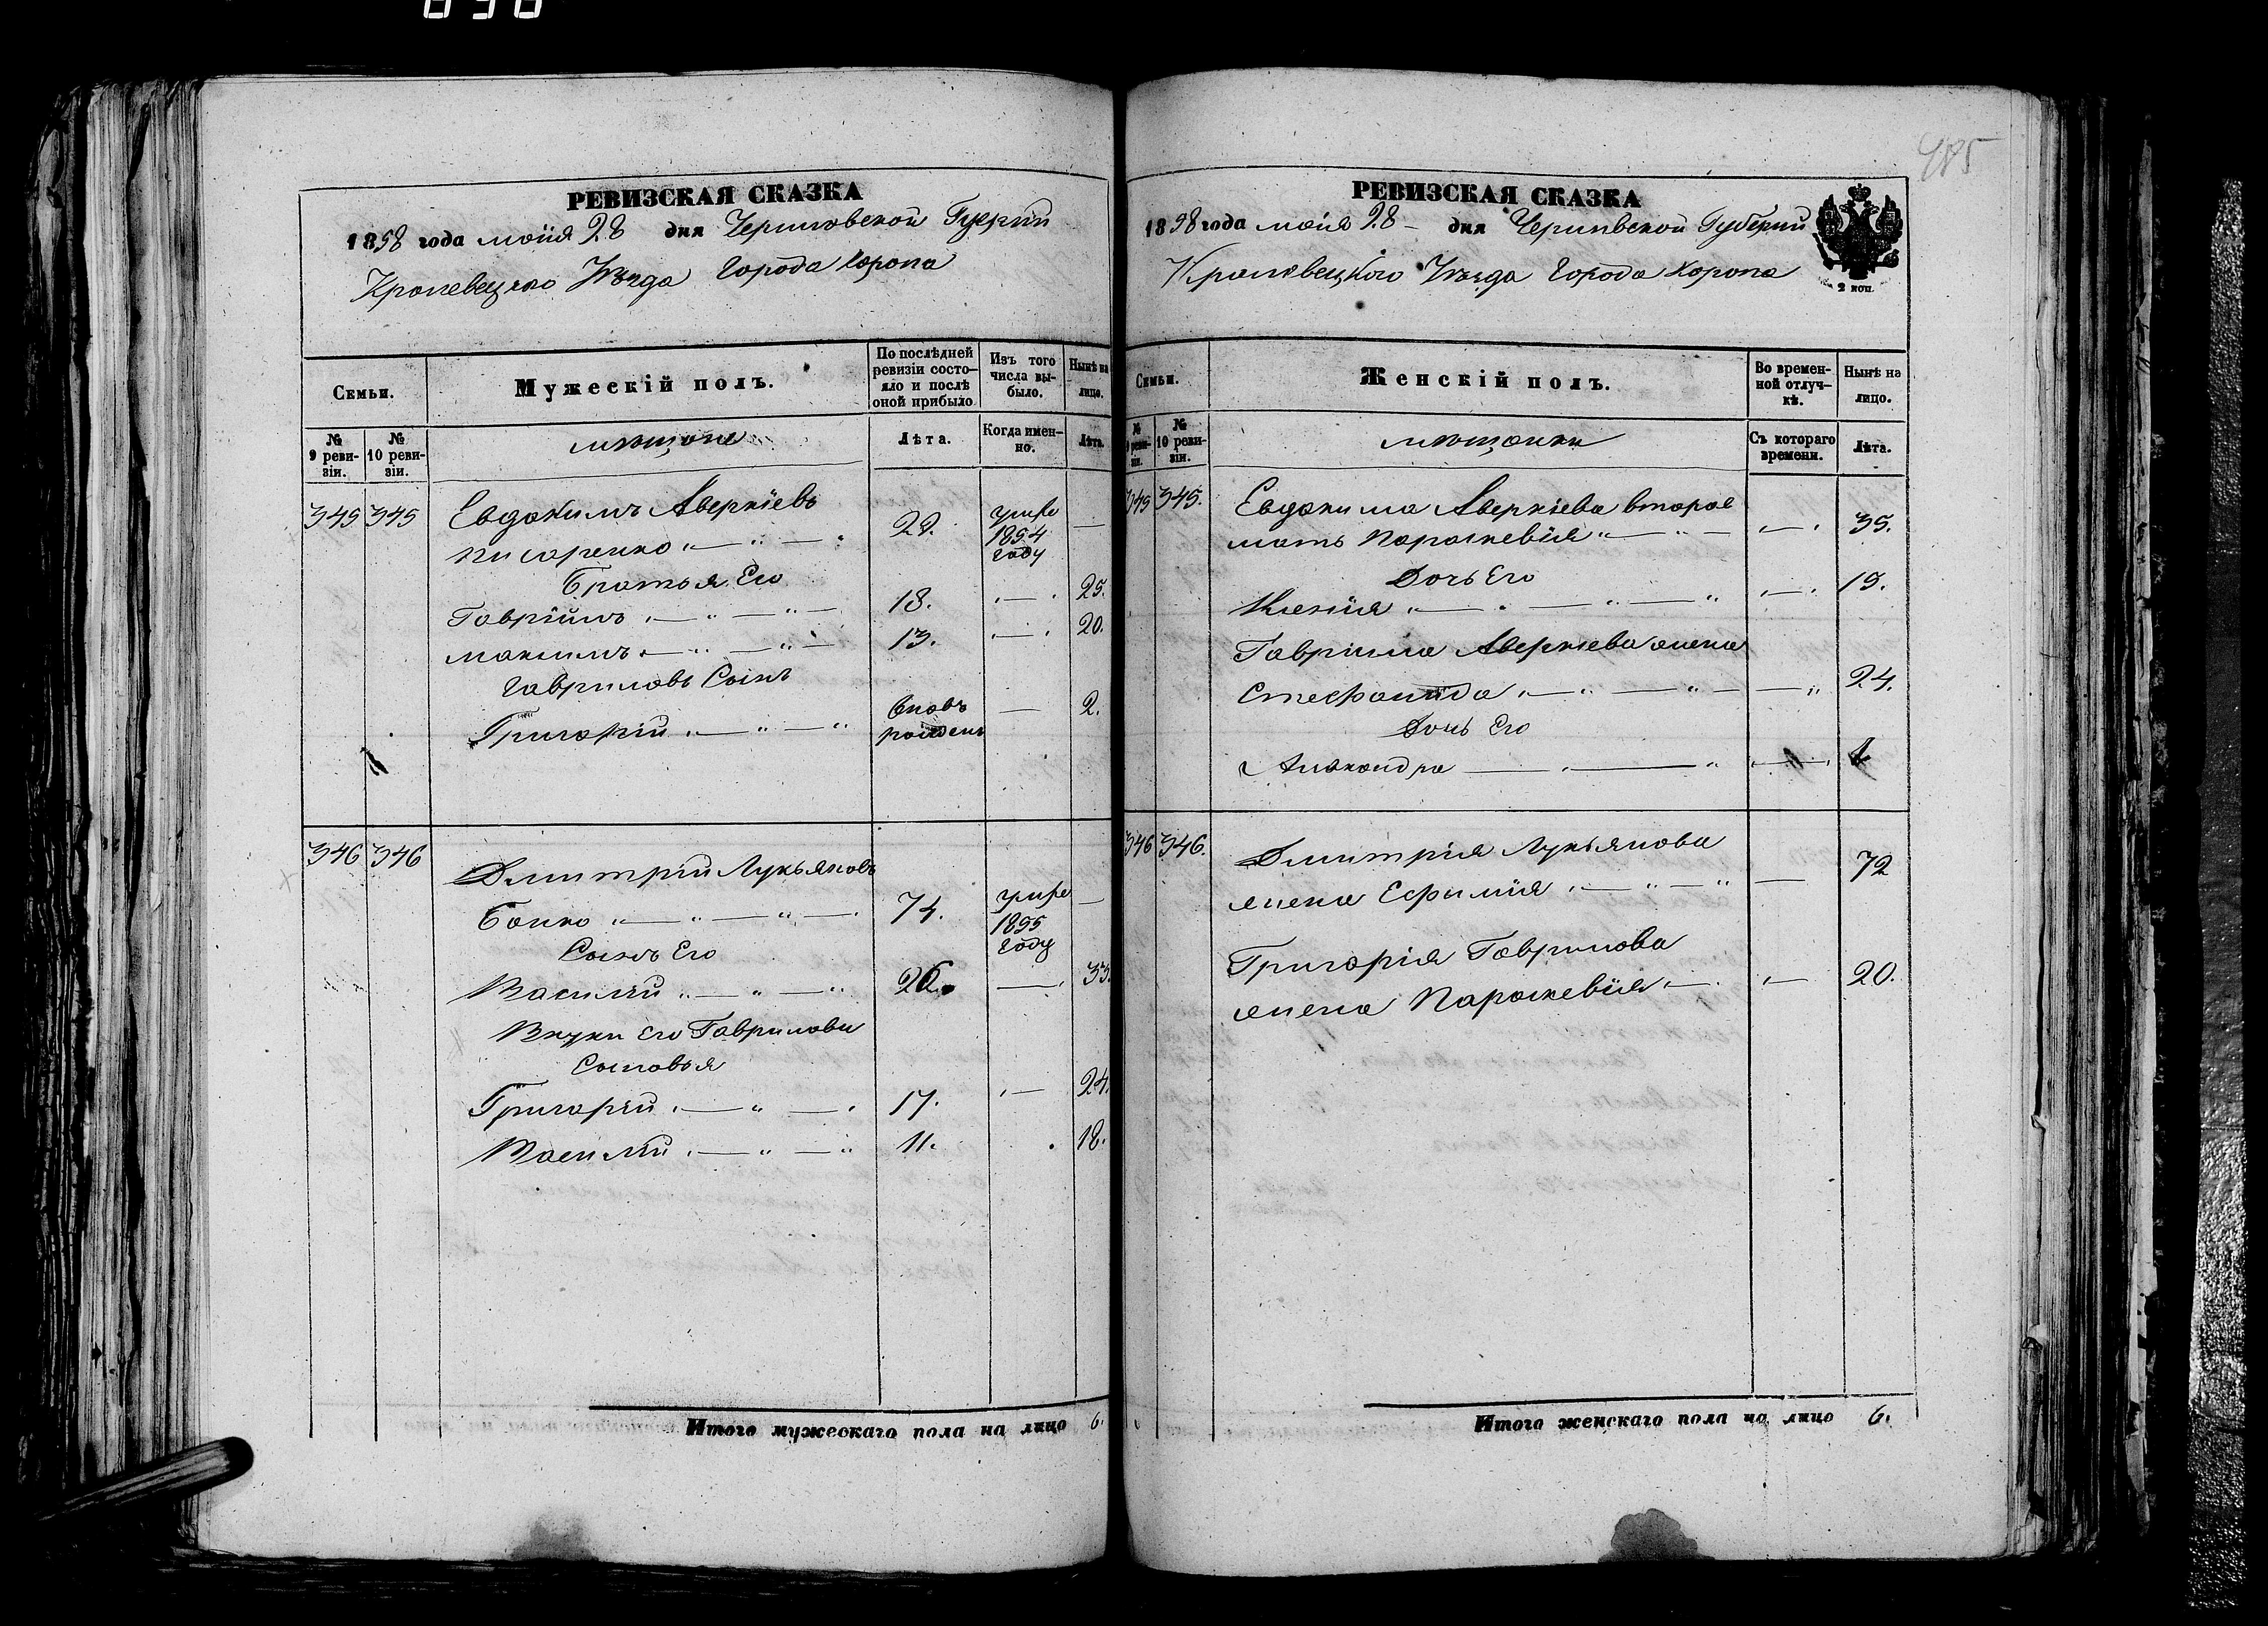 РЕВИЗСКАЯ СКАЗКА
1858 года мая 28 дня Черниговской Губернии
Кролевецкаго Уѣзда Города Коропа
Семьи.
Мужескій полъ.
По послѣдней ревизіи состояло и послѣ оной прибыло
Изъ того числа выбыло.
Нынѣ на лицо.
№ 9 ревизіи.
№ 10 ревизіи.
мѣщане
Лѣта.
Когда именно.
Лѣта.
345 345 Евдокимъ Аверкіевъ
Писаренко 22. умре 1854 году —
Братья Его
Гавріилъ 18. — 25.
Максимъ 13. — 20.
Гавриловъ Сынъ
Григорій вновь рожденъ — 2.
346 346 Дмитрій Лукьяновъ
Бойко 74. умре 1855 году —
Сынъ Его
Василій 26. — 33.
Внуки Его Гавриловы
Сыновья
Григорій 17. — 24.
Василій 11. 18.
Итого мужескаго пола на лицо 6.
485
РЕВИЗСКАЯ СКАЗКА
1858 года мая 28 дня Черниговской Губернии
Кролевецкаго Уѣзда Города Коропа
2 коп.
Семьи.
Женскій полъ.
Во временной отлучкѣ.
Нынѣ на лицо.
№ 9 ревизіи.
№ 10 ревизіи.
мѣщанки
Съ котораго времени.
Лѣта.
345 345. Евдокима Аверкіева вторая
мать Параскевія — 35.
Дочь Его
Ксенія — 19.
Гаврила Аверкіева жена
Стефанида — 24.
Дочь Его
Александра — 1
346 346. Дмитрія Лукьянова
жена Ефимія — 72
Григорія Гаврилова
жена Параскевія — 20.
Итого женскаго пола на лицо 6.